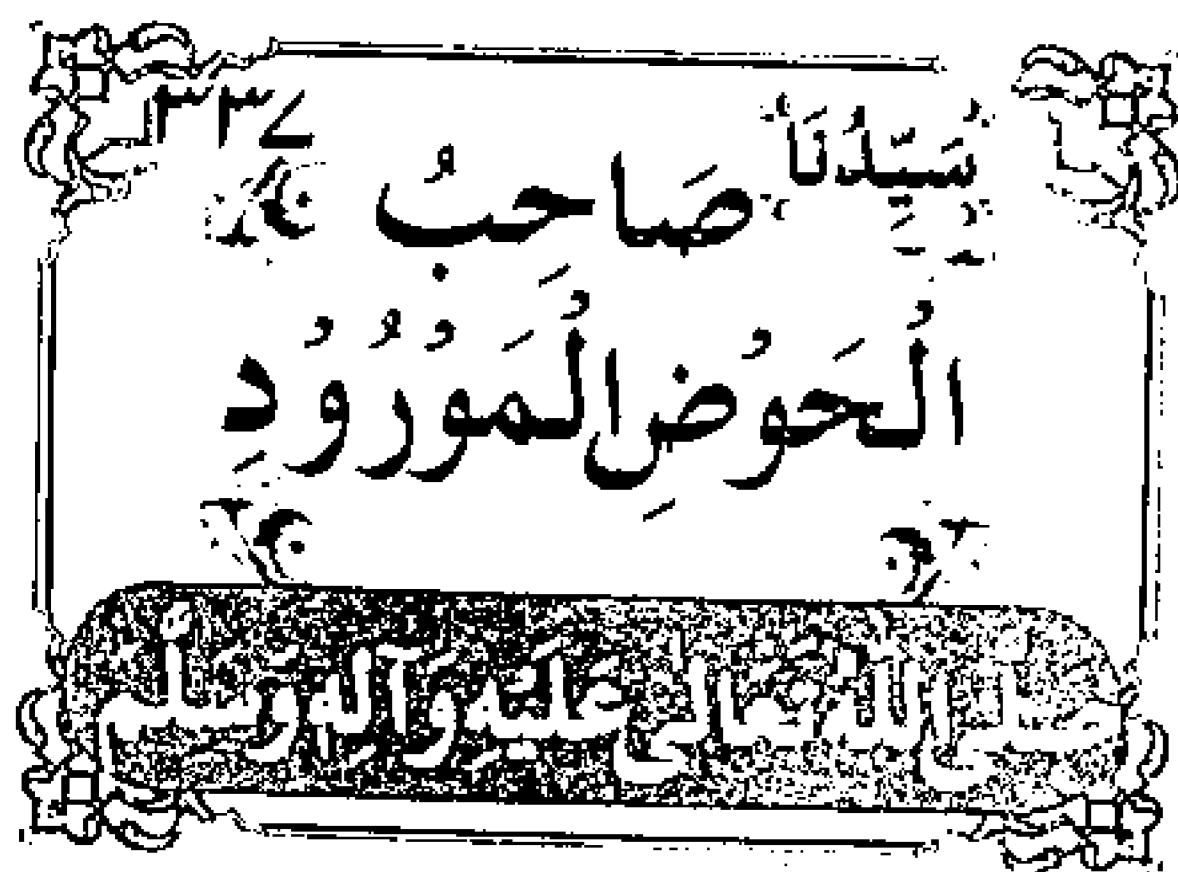 ۳۳۷
سَيِّدُنَا
صَاحِبُ
الْحَوْضِ الْمَوْرُوْدِ
صلى الله تعالى عليه وآله وسلم